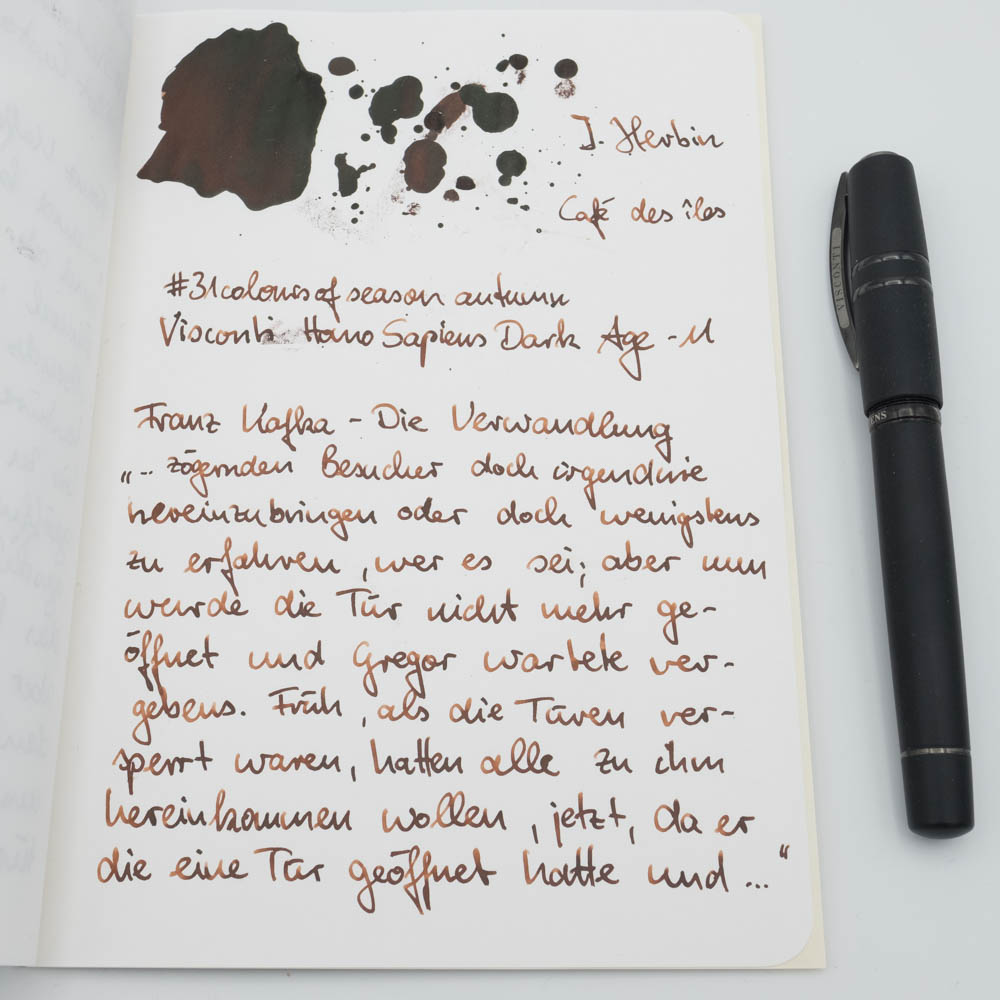 J. Herbin
Café des îles
#31coloursof season autumn
Visconti Homo Sapiens Dark Age - M
Franz Kafka - Die Verwandlung
„... zögernden Besucher doch irgendwie
hereinzubringen oder doch wenigstens
zu erfahren, wer es sei; aber nun
wurde die Tür nicht mehr ge-
öffnet und Gregor wartete ver-
gebens. Früh, als die Türen ver-
sperrt waren, hatten alle zu ihm
hereinkommen wollen, jetzt, da er
die eine Tür geöffnet hatte und ..."
VISCONTI
ENS